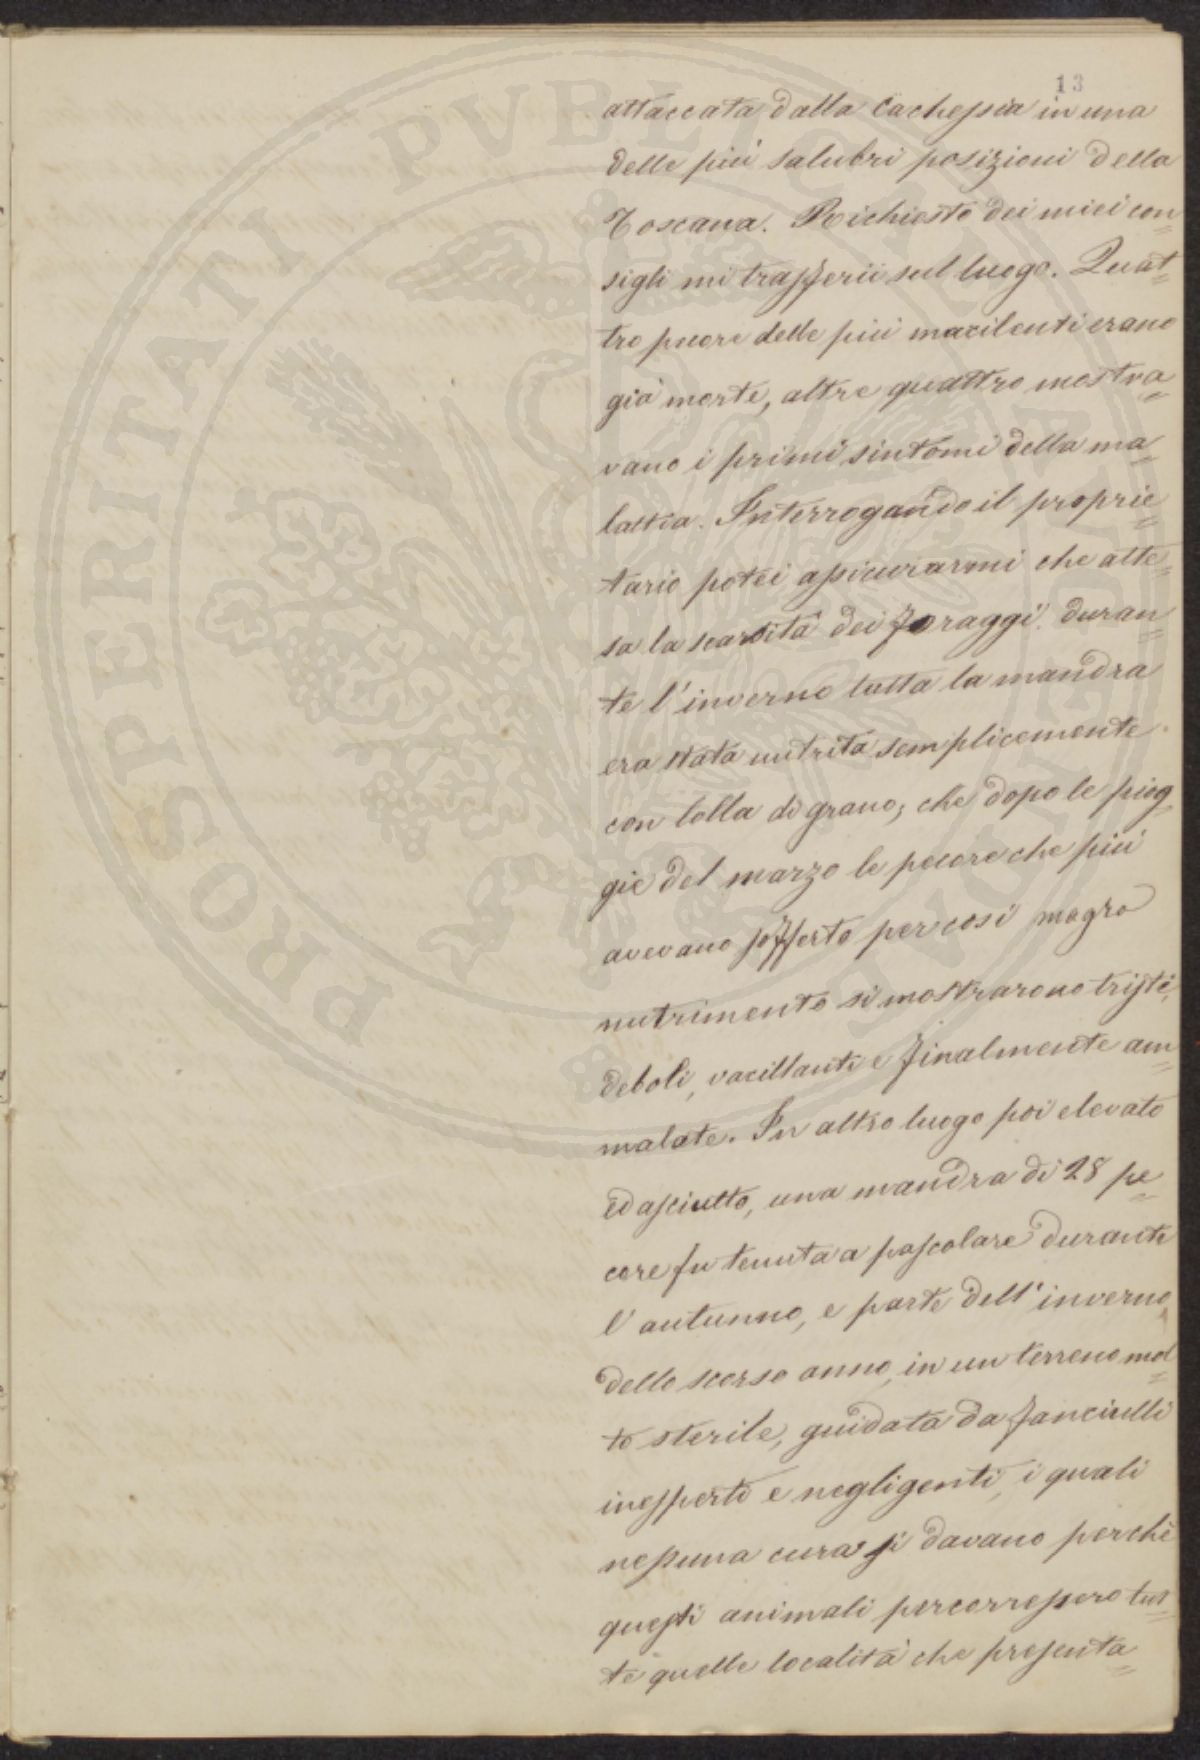 13
attaccata dalla cachessia in una
delle più salubri posizioni della
Toscana. Richiesto dei miei con=
sigli mi trasferii sul luogo. Quat=
tro pecore delle più macilenti erano
già morte, altre quattro mostra=
vano i primi sintomi della ma=
lattia. Interrogando il proprie=
tario potei assicurarmi che atte=
sa la scarsità dei foraggi duran=
te l'inverno tutta la mandra
era stata nutrita semplicemente
con lolla di grano; che dopo le piog=
gie del marzo le pecore che più
avevano sofferto per così magro
nutrimento si mostrarono tristi,
deboli, vacillanti e finalmente am=
malate. In altro luogo poi elevato
ed asciutto, una mandra di 28 pe=
core fu tenuta a pascolare durante
l'autunno, e parte dell'inverno
dello scorso anno, in un terreno mol=
to sterile, guidata da fanciulli
inesperti e negligenti, i quali
nessuna cura si davano perchè
questi animali percorressero tut=
te quelle località che presenta=
PROSPERITATI PVBLICAE AVGENDAE